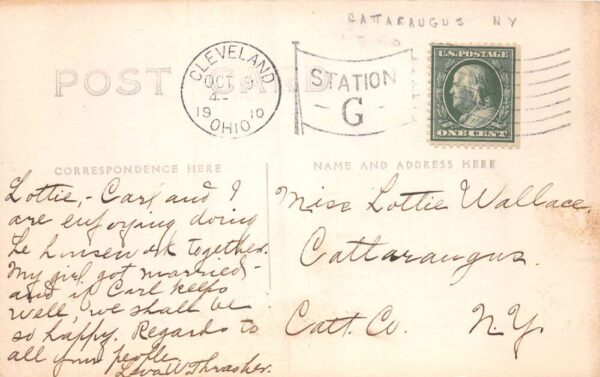 CATTARAUGUS NY
POST CARD
CLEVELAND
OCT 3
4-
19 10
OHIO
STATION
-G-
U.S. POSTAGE
ONE CENT
CORRESPONDENCE HERE
NAME AND ADDRESS HERE
Lottie,- Carl and I
are enjoying doing
he housework together.
My girl got married-
and if Carl keeps
well, we shall be
so happy. Regards to
all your people.
Leva W Thrasher.
Miss Lottie Wallace.
Cattaraugus.
Catt. Co. N.Y.